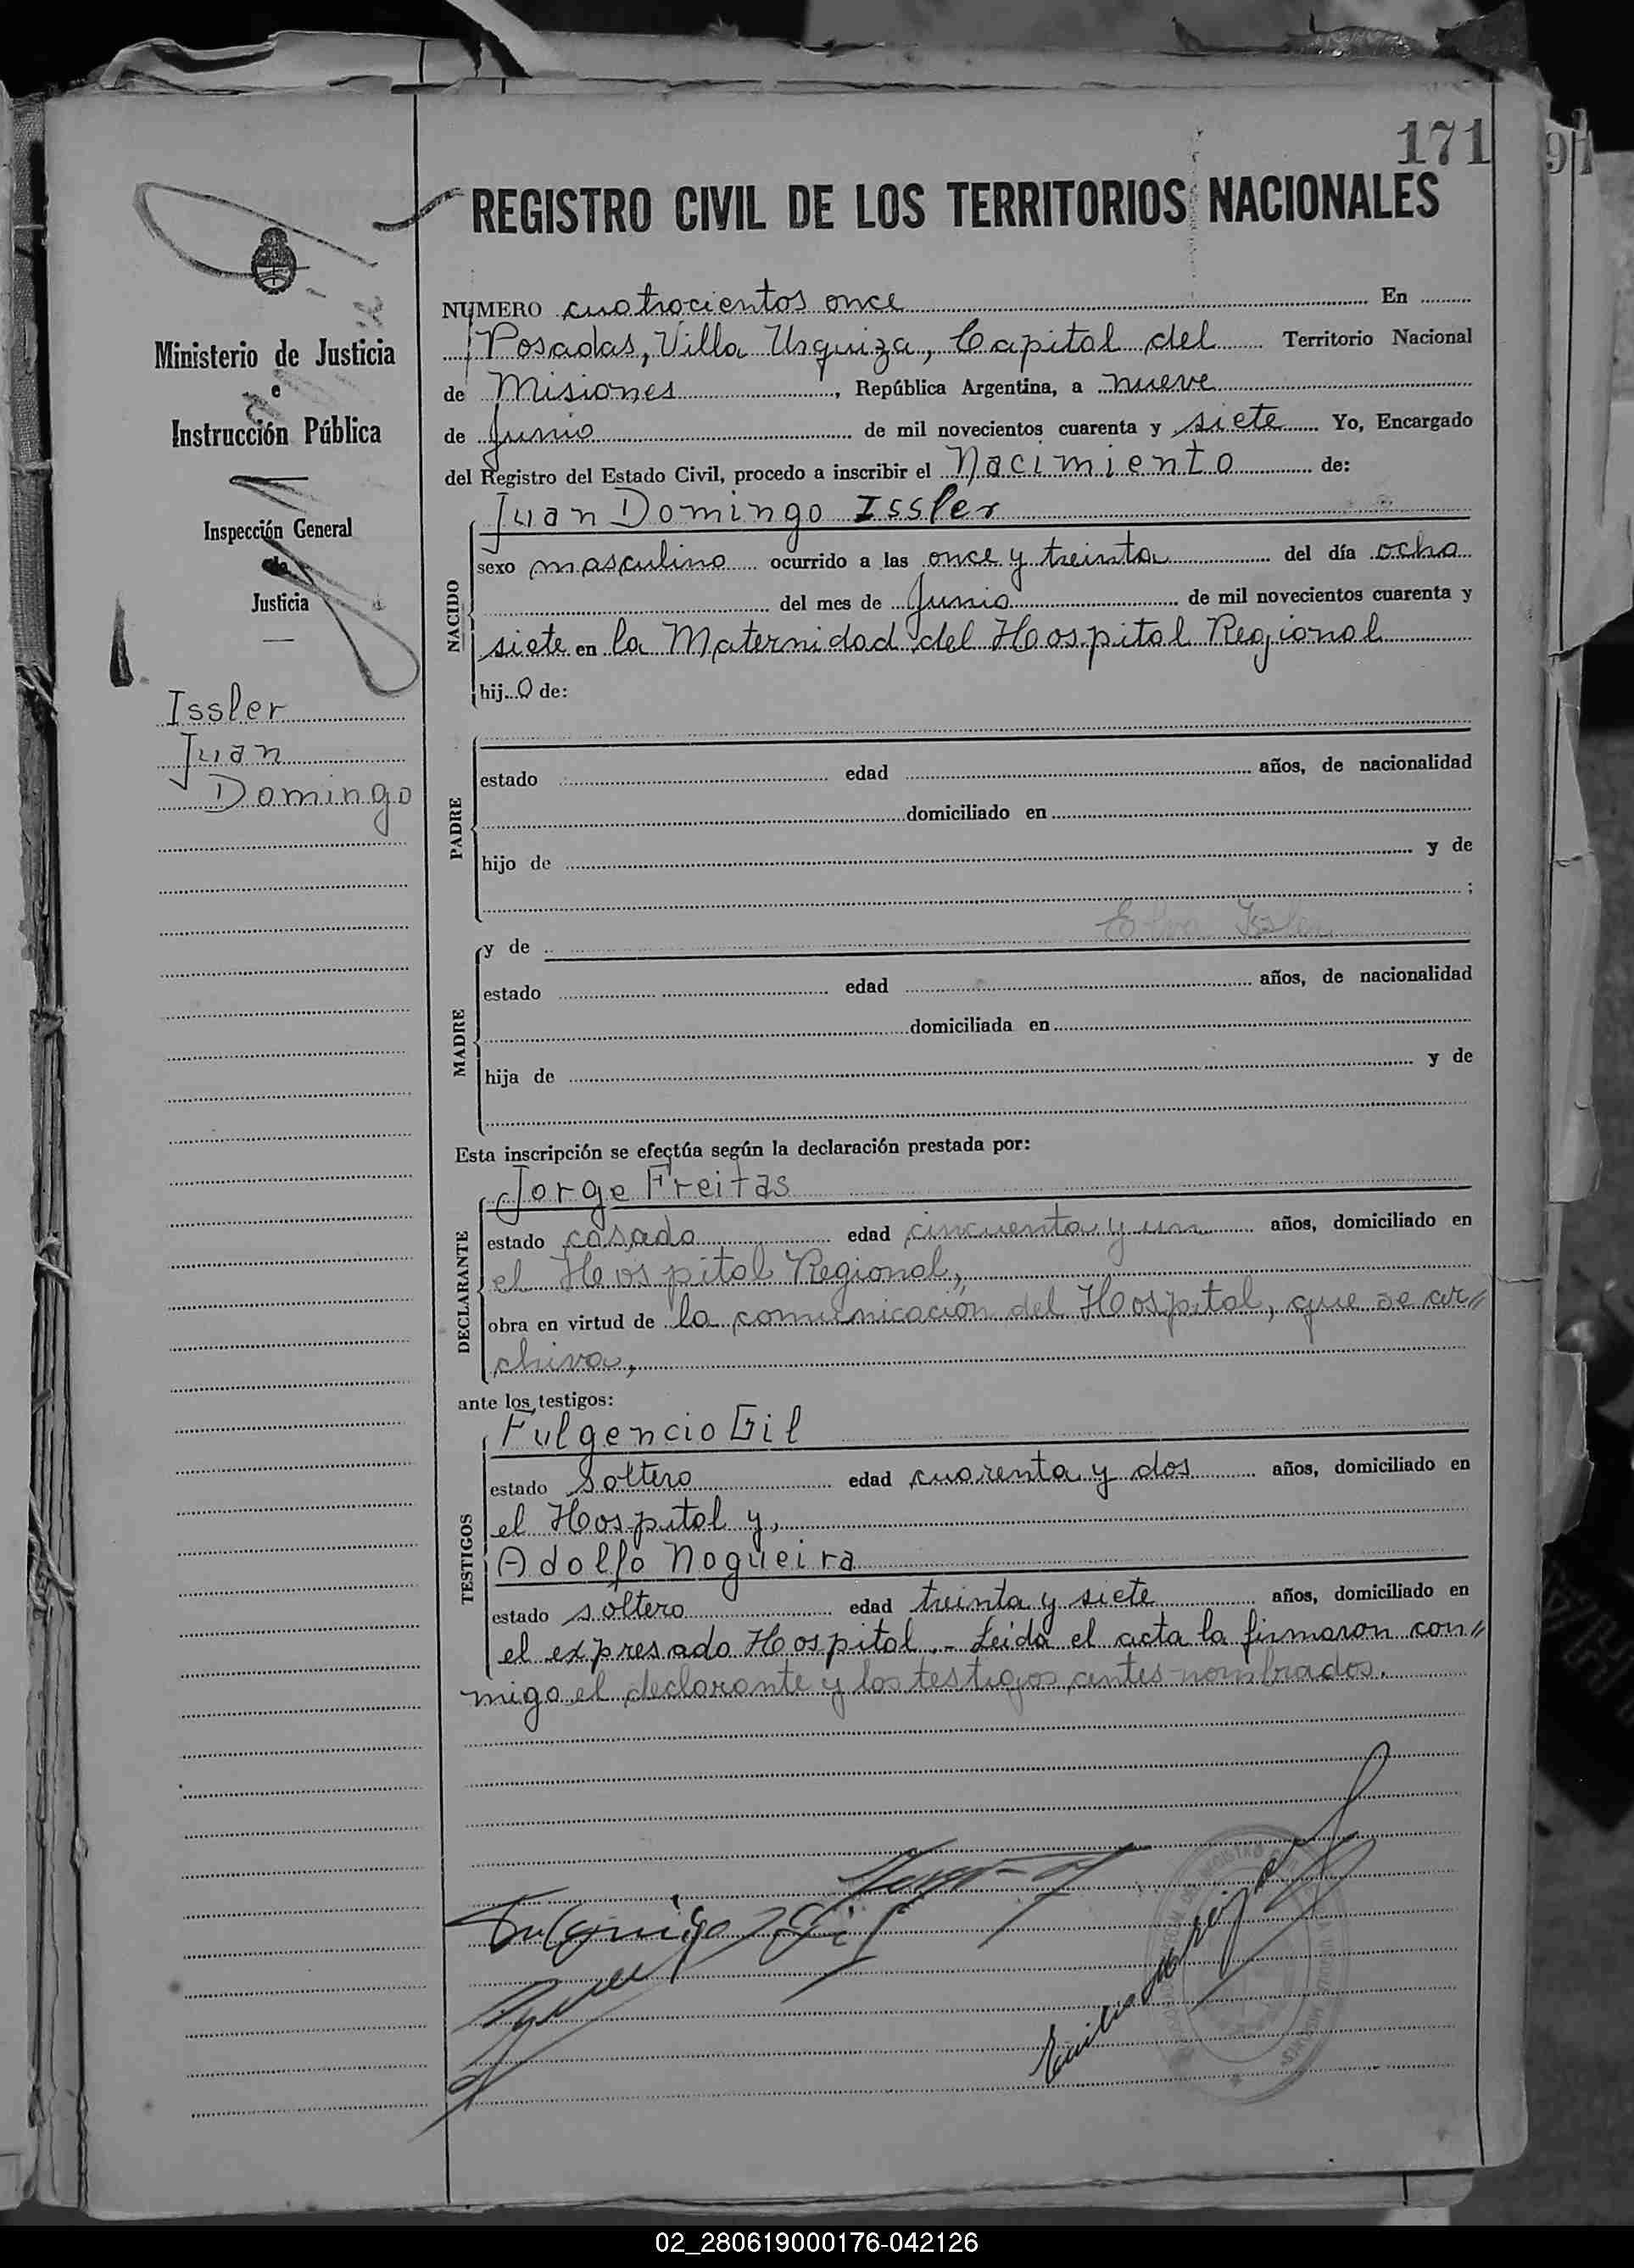 171
91
REGISTRO CIVIL DE LOS TERRITORIOS NACIONALES
Ministerio de Justicia
e
Instrucción Pública
Inspección General
de
Justicia
Issler
Juan
Domingo
NUMERO cuatrocientos once En
Posadas, Villa Urquiza, Capital del Territorio Nacional
de Misiones, República Argentina, a nueve
de Junio de mil novecientos cuarenta y siete Yo, Encargado
del Registro del Estado Civil, procedo a inscribir el Nacimiento de:
Juan Domingo Issler
NACIDO
sexo masculino ocurrido a las once y treinta del día ocho
del mes de Junio de mil novecientos cuarenta y
siete en la Maternidad del Hospital Regional
hijo de:
PADRE
estado edad años, de nacionalidad
domiciliado en
hijo de y de
;
Elva Issler
MADRE
y de
estado edad años, de nacionalidad
domiciliada en
hija de y de
Esta inscripción se efectúa según la declaración prestada por:
Jorge Freitas
DECLARANTE
estado casado edad cincuenta y un años, domiciliado en
el Hospital Regional,
obra en virtud de la comunicación del Hospital, que se ar//
chiva,
ante los testigos:
Fulgencio Gil
TESTIGOS
estado soltero edad cuarenta y dos años, domiciliado en
el Hospital y,
Adolfo Nogueira
estado soltero edad treinta y siete años, domiciliado en
el expresado Hospital.- Leida el acta la firmaron con//
migo el declarante y los testigos antes nombrados.
02_280619000176-042126